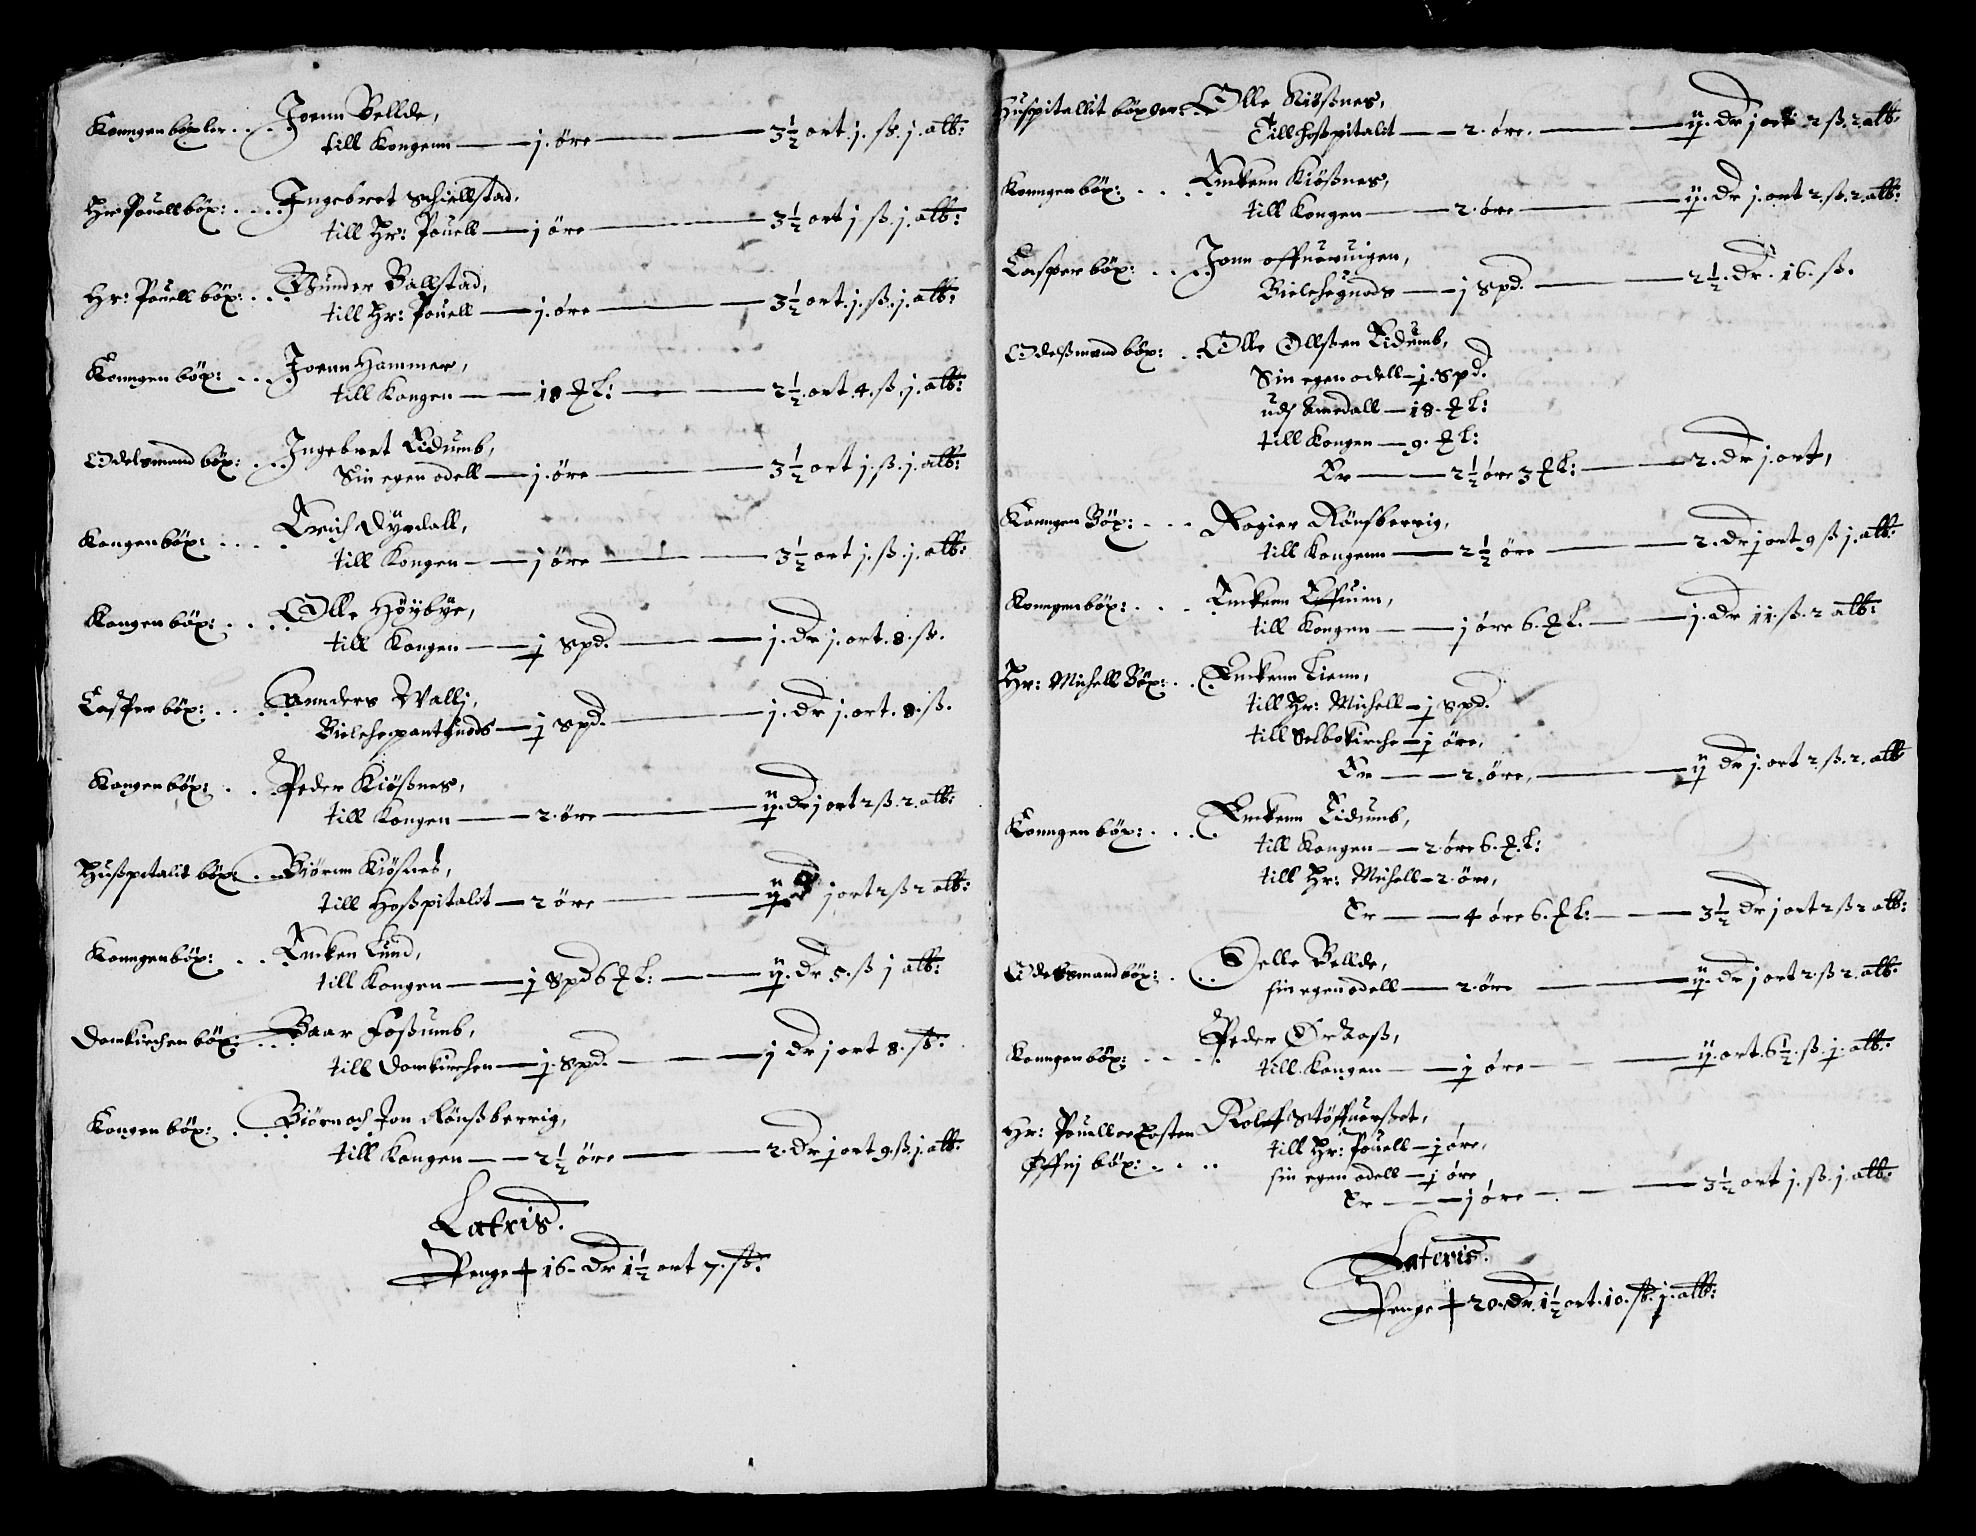 Konngen böxler . . . Joenn Bellde,
till Kongenn — j. öre — 3½ ort. j. ß. j. alb:
Hr: Pouell böx: . . . Ingebret Schiellstad,
till Hr: Pouell — j öre — 3½ ort j ß. j. alb:
Hr: Pouell böx: . . . Gunder Ballstad,
till Hr: Pouell — j. öre — 3½ ort. j. ß. j. alb:
Konngen böx: . . . Joenn Hammer,
till Kongen — 18 ℔ L: — 2½ ort 4. ß. j. alb:
Odelsmand böx: . . Ingebret Eidumb,
Sin egen odell — j. öre — 3½ ort j ß. j. alb:
Kongen böx: . . . . Erich Dyrdall,
till Kongen — j öre — 3½ ort j. ß. j. alb:
Kongen böx: . . . . Olle Höÿbÿe,
till Kongen — j spd. — j. Dr j. ort. 8. ß.
Casper böx: . . . Annders Wallj,
Bielche pantguods — j spd. — j. Dr j. ort. 8. ß.
Kongen böx: . . Peder Kiößnes,
till Kongen — 2. öre — ij. Dr j ort 2 ß. 2. alb:
Hußpitalit böx: . . Biörnn Kiößnes,
till Hoßpitalit — 2 öre — ij. Dr j ort 2 ß 2 alb:
Konngen böx: . . . Encken Lund,
till Kongen — j Spd 6 ℔ L: — ij. Dr 5. ß j alb:
Domkirchen böx: . . . Baar Foßumb,
till Domkirchen — j. Spd. — j Dr j ort 8. ß.
Kongen böx: . . . Biörn och Jon Rönßberrig,
till Kongen — 2½ öre — 2. Dr j ort 9. ß. j. alb:
Lateris.
Penge 16. Dr 1½ ort 7. ß:
Huspitallit böxler: . . Olle Kiößnes,
Till Hospitalit — 2. öre. — ij. Dr j ort 2 ß. 2. alb:
Konngen böx: . . . Enckenn Kiößnes,
till Kongen — 2. öre — ij. Dr j. ort 2. ß. 2. alb:
Casper böx: . . . Jonn offueruigen,
Bielcheguods — j Spd. — 2½. Dr. 16. ß.
Odelßmand böx: . . Olle Ollßen Eidumb,
Sin egen odell — j. Spd.
udj Amdall — 18. ℔ L:
till Kongen — 9. ℔ L:
Er — 2½ öre 3 ℔ L: — 2. Dr j. ort,
Konngen Böx: . . . Rogier Rönsberrig,
till Kongenn — 2½ öre — 2. Dr j ort 9 ß j. alb:
Konngen böx: . . . . Enckenn Effuien,
till Kongen — j öre 6. ℔ L. — j. Dr 11. ß. 2 alb:
Hr: Michell Böx: . . Enckenn Lienn,
till Hr: Michell — j Spd.
till Selbo Kirche — j öre,
Er — 2. öre, — ij Dr j. ort 2. ß. 2. alb
Konngen böx: . . . Enckenn Eidumb,
till Kongen — 2. öre 6. ℔ L:
till Hr: Michell — 2. öre,
Er — 4 öre 6. ℔ L: — 3½ Dr j ort 2 ß 2 alb:
Odelsmand böx: . . . Selle Bellde,
sin egen odell — 2. öre — ij. Dr j ort 2. ß 2. alb:
Konngen böx: . . . . Peder
till Kongen — j öre — ij. ort. 6½. ß. j. alb:
Hr: Pouell oc Rolff Stöffuerßet,
till Hr: Pouell — j öre,
böx: . . . . sin egen odell — j öre
Er — j öre — 3½ ort j. ß. j. alb:
Lateris.
Penge 20. Dr. 1½ ort. 10. ß. j. alb: